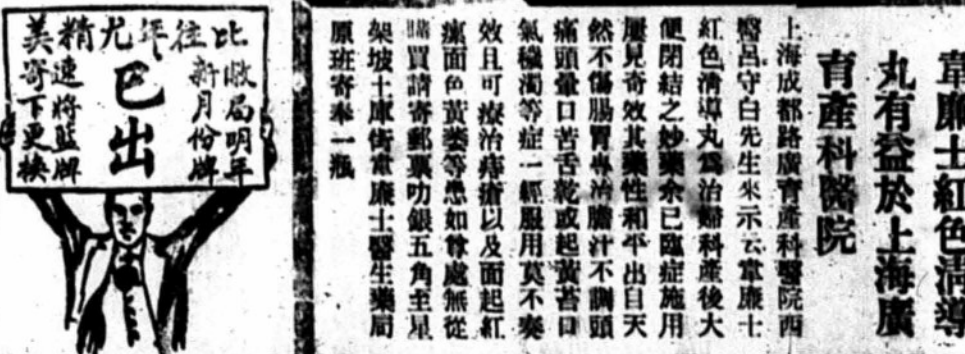 韋廉士紅色清導
丸有益於上海廣
育產科醫院
上海成都路廣育產科醫院西
醫呂守白先生來示云韋廉士
紅色清導丸爲治婦科產後大
便閉結之妙藥余已臨症施用
屢見奇效其藥性和平出自天
然不傷腸胃專治膽汁不調頭
痛頭暈口苦舌乾或起黃苔口
氣穢濁等症一經服用莫不奏
效且可療治痔瘡以及面起紅
瘰面色黃萎等患如尊處無從
購買請寄郵票叻銀五角至星
架坡土庫街韋廉士醫生藥局
原班寄奉一瓶
比往年尤精美
敝局明年
新月份牌
已出
速將藍牌
寄下更換